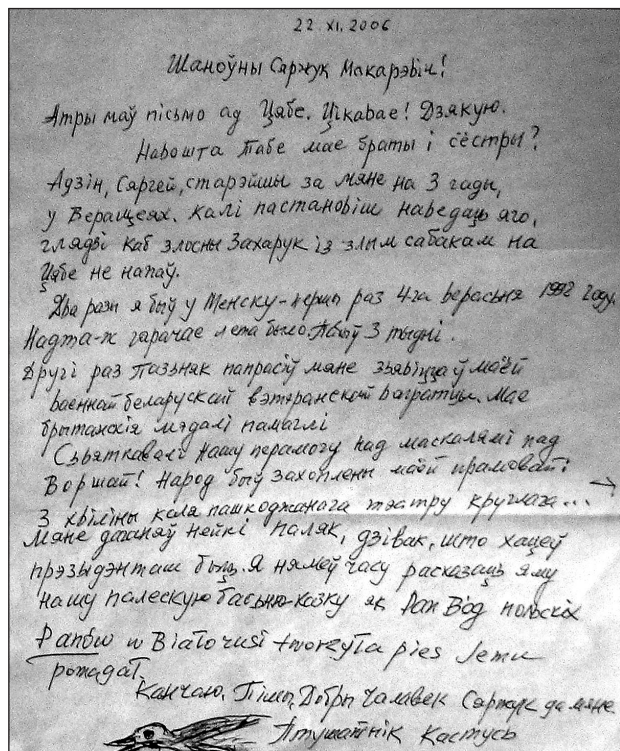 22.XI.2006
Шаноўны Сяржук Макарэвіч!
Атрымаў пісьмо ад Цябе. Цікавае! Дзякую.
Навошта Табе мае браты і сёстры?
Адзін, Сяргей, старэйшы за мяне на 3 гады,
у Верацеях. Калі пастановіш наведаць яго,
глядзі каб злосны Захарук із злым сабакам на
Цябе не напаў.
Два разы я быў у Менску - першы раз 4га верасьня 1992 году.
Надта-ж гарачае лета было. Пабыў 3 тыдні.
Другі раз Пазьняк папрасіў мяне зьявіцца ў маёй
военнай беларускай вэтэранскай вопратцы. Мае
брытанскія мэдалі памаглі
Сьвяткавалі Нашу перамогу над маскалямі пад
Воршай! Народ быў захоплены маёй прамовай:
3 хвіліны каля пашкоджанага тэатру круглага...
Мяне даганяў нейкі паляк, дзівак, што хацеў
прэзыдэнтам быць. Я нямеў часу расказаць яму
нашу палескую басьню-казку як Pan Bóg польскіх
Panów w Białorusi tworzył a pies Jemu
pomagał.
Канчаю. Пішы, Добры Чалавек Сяржук да мяне
Кастусь